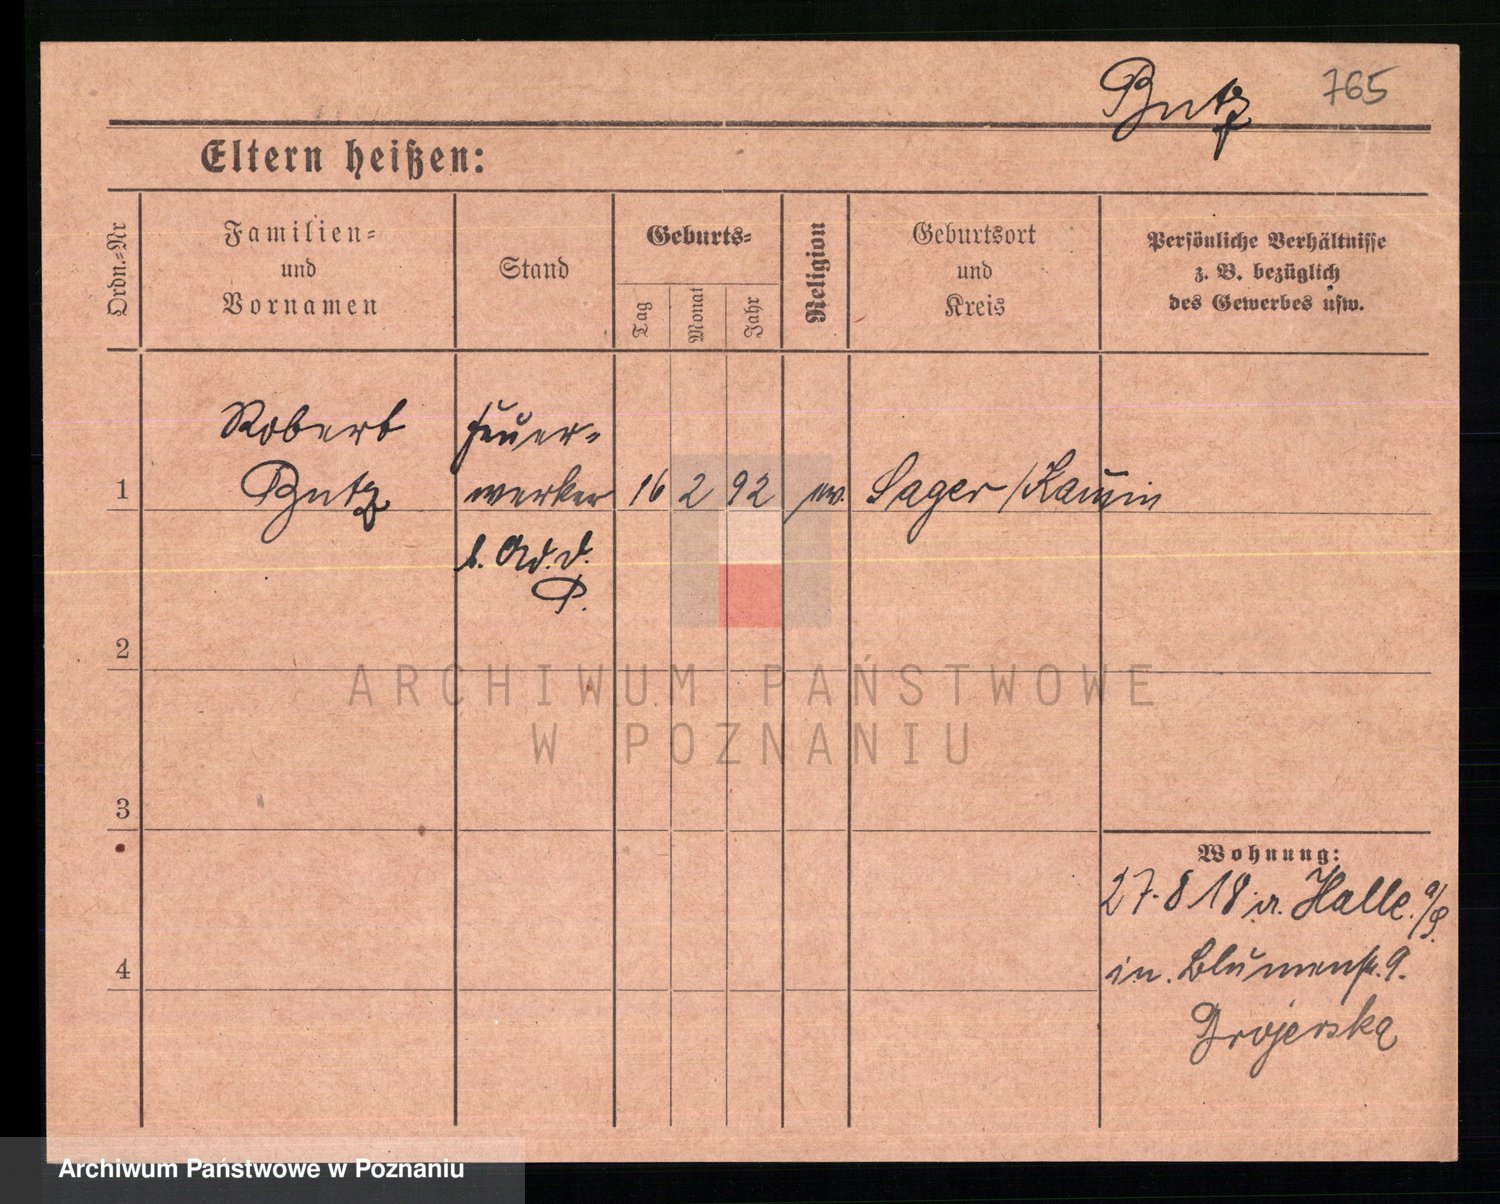 Butz 765
Eltern heißen:
Ordn.-Nr
Familien-
und
Vornamen
Stand
Geburts-
Tag
Monat
Jahr
Religion
Geburtsort
und
Kreis
Persönliche Verhältnisse
z. B. bezüglich
des Gewerbes usw.
Robert Feuer-
1 Butz werker 16 2 92 ev. Sager / Kamin
b. Ad. d.
P.
2
ARCHIWUM PAŃSTWOWE
W POZNANIU
3
Wohnung:
27. 8 18 a. Halle a/S.
4 in. Blumenstr. 9.
Archiwum Państwowe w Poznaniu